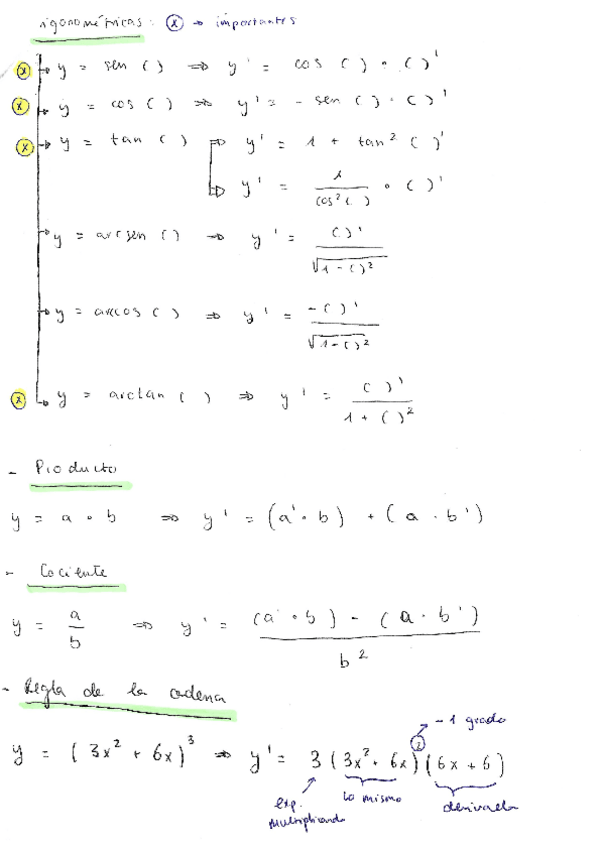 rigonométricas: (x) → importantes
(x) → y = sen ( ) ⇒ y' = cos ( ) · ( )'
(x) → y = cos ( ) ⇒ y' = - sen ( ) · ( )'
(x) → y = tan ( ) ⇒ y' = 1 + tan² ( )'
⇒ y' = 1 / cos² ( ) · ( )'
→ y = arcsen ( ) ⇒ y' = ( )' / √1 - ( )²
→ y = arccos ( ) ⇒ y' = -( )' / √1 - ( )²
(x) → y = arctan ( ) ⇒ y' = ( )' / 1 + ( )²
- Producto
y = a · b ⇒ y' = (a' · b) + (a · b')
- Cociente
y = a / b ⇒ y' = (a' · b) - (a · b') / b²
- Regla de la cadena
-1 grado
y = (3x² + 6x)³ ⇒ y' = 3 (3x² + 6x)² (6x + 6)
exp. multiplicando
lo mismo
derivada